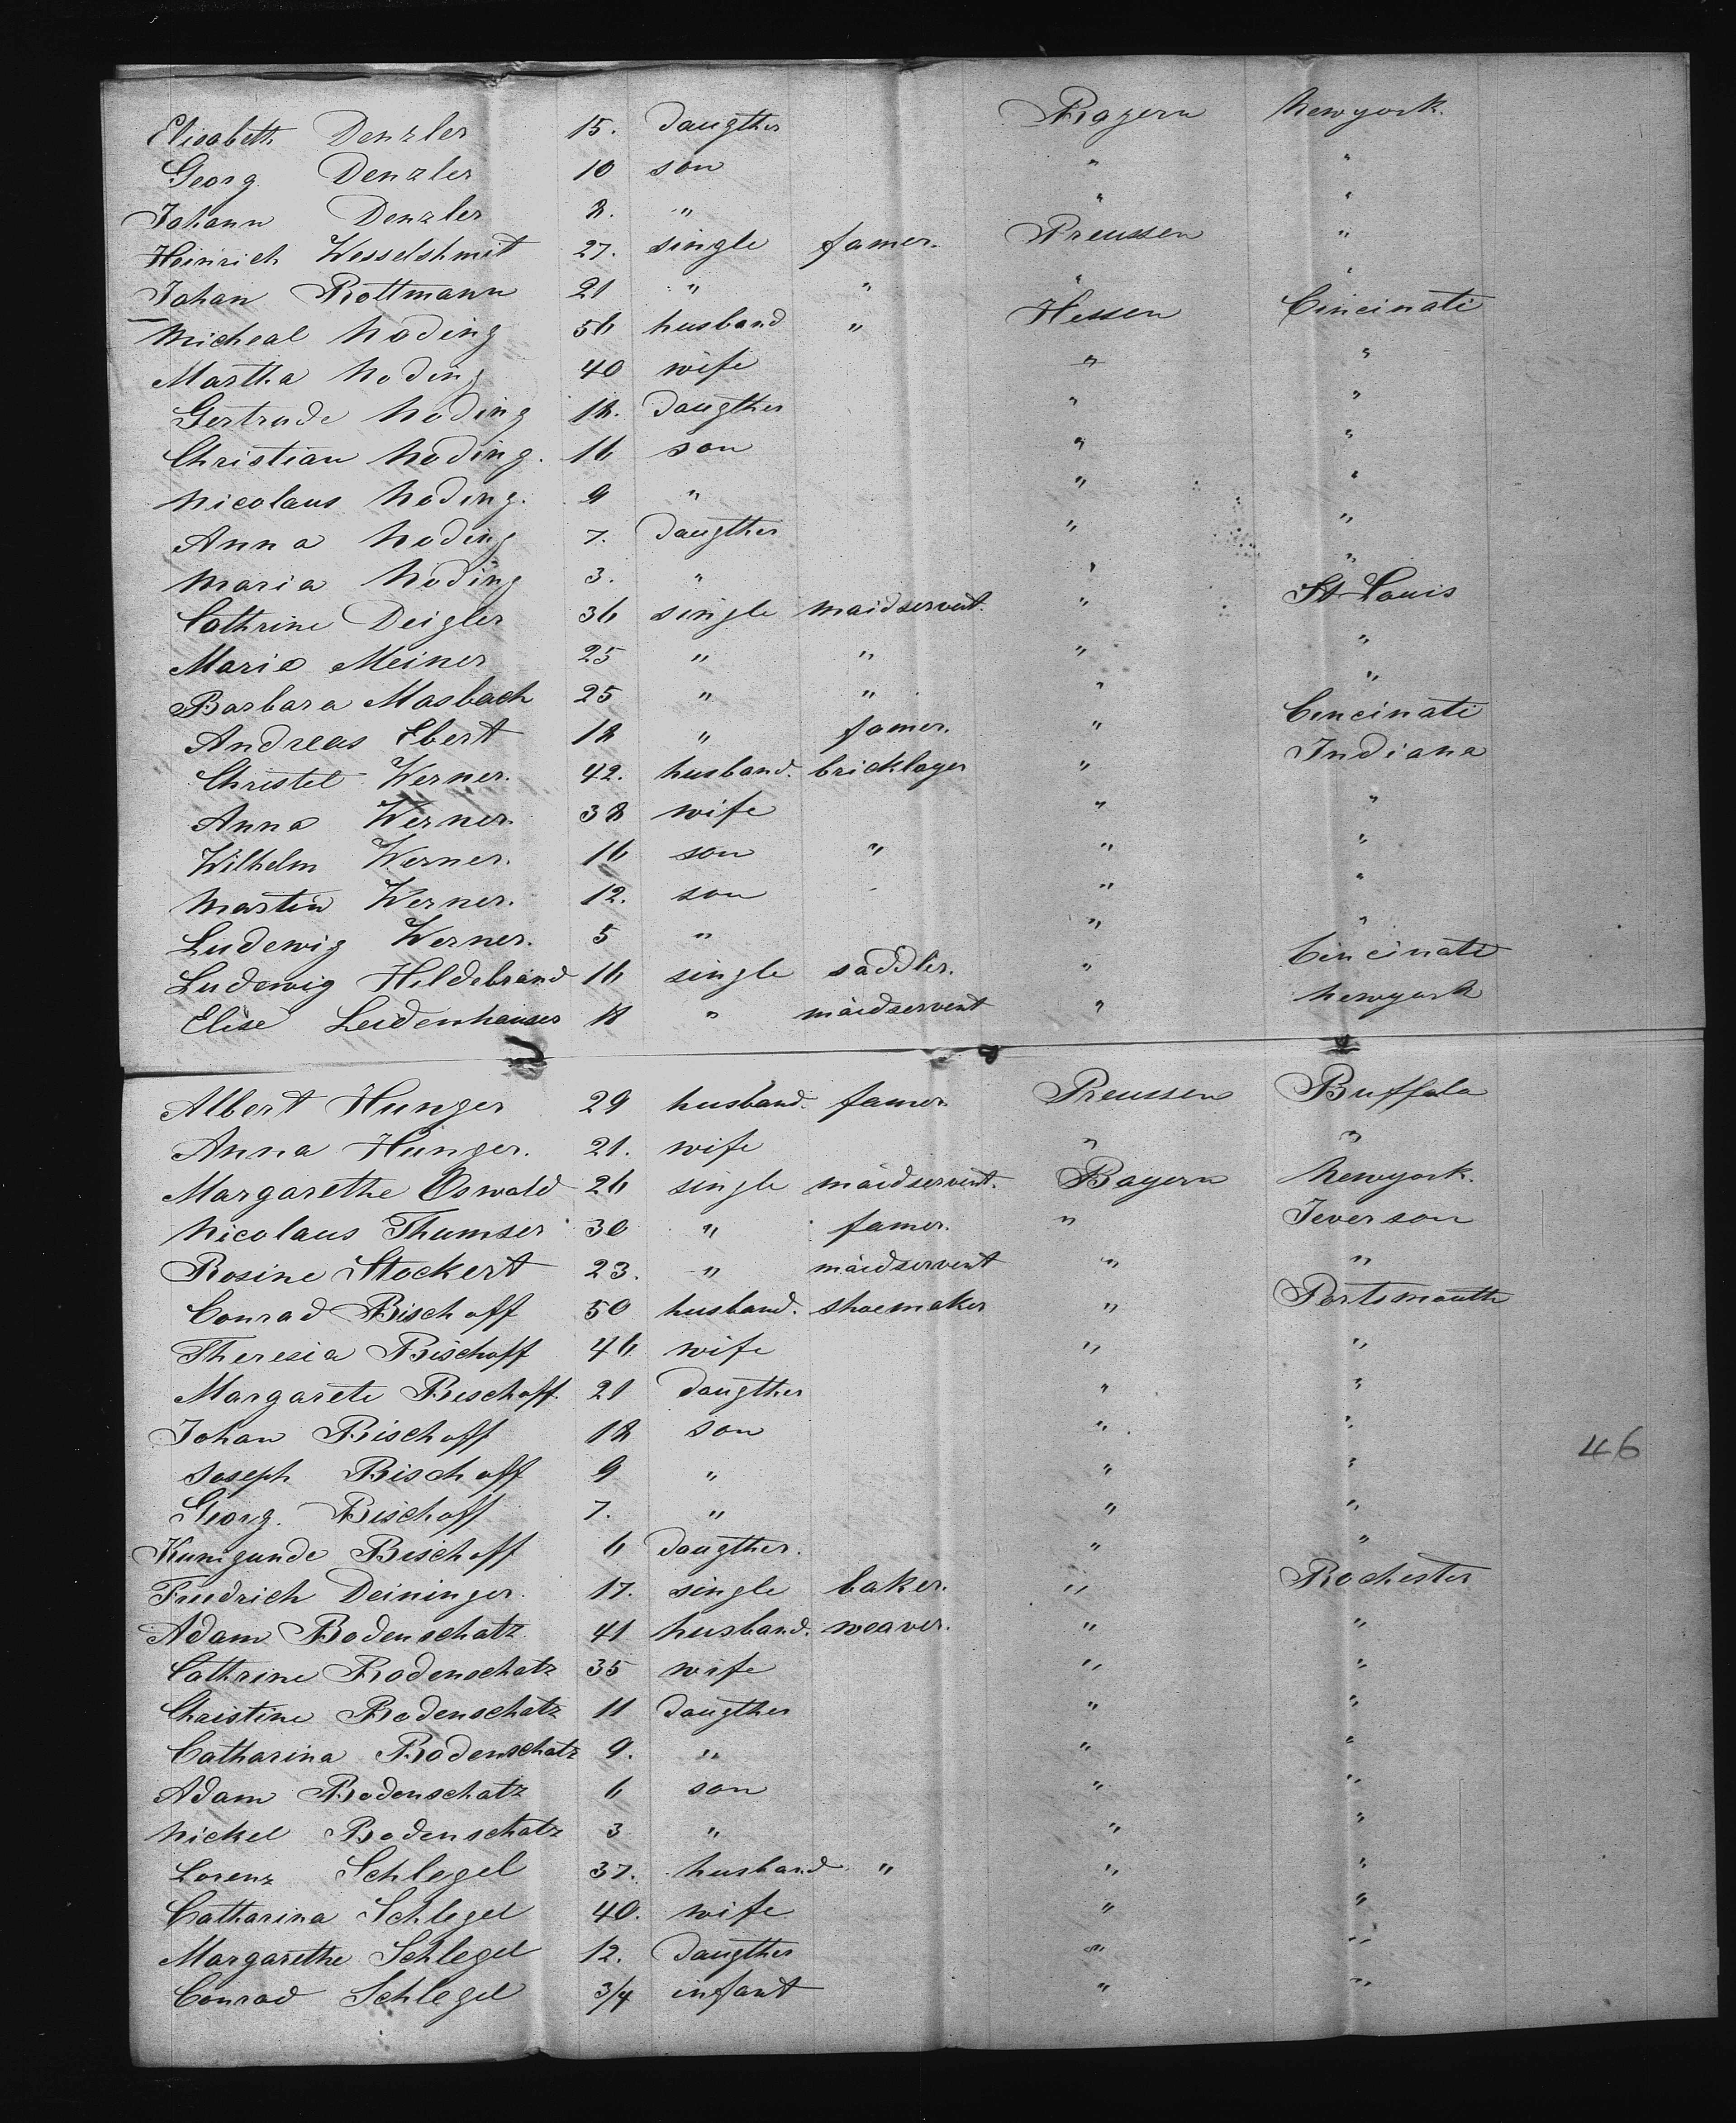 Elisabeth Denzler 15. daugther Bayern Newyork.
Georg Denzler 10 son " "
Johann Denzler 8. " " "
Heinrich Wesselshmit 27. single famer. Preussen "
Johan Rottmann 21 " " " "
Micheal Noding 56 husband " Hessen Cincinati
Martha Noding 40 wife " "
Gertrude Noding 18. daugther " "
Christian Noding. 16 son " "
Nicolaus Noding. 9 " " "
Anna Noding 7. daugther " "
Maria Noding 3. " " "
Cathrine Deigler 36 single maidservent. " St Louis
Marie Meiner 25 " " " "
Barbara Masbach 25 " " " "
Andreas Ebert 18 " famer. " Cincinati
Christel Werner. 42. husband. bricklayer " Indiana
Anna Werner. 38 wife " "
Wilhelm Werner. 16 son " " "
Martin Werner. 12. son " "
Ludewig Werner. 5 " " "
Ludewig Hildebrand 16 single saddler. " Cincinati
Elise Leidenhauser 18 " maidservent " Newyork
Albert Hunger 29 husband. famer. Preussen Buffalo
Anna Hunger. 21. wife " "
Margarethe Oswald 26 single maidservent. Bayern Newyork.
Nicolaus Thumser 30 " famer. " Jeverson
Rosine Stockert 23. " maidservent " "
Conrad Bischoff 50 husband. shoemaker " Portsmouth
Theresia Bischoff 46 wife " "
Margarete Bischoff. 21 daugther " "
Johan Bischoff 18 son " "
Joseph Bischoff 9 " " "
Georg. Bischoff 7. " " "
Kunigunde Bischoff 6 daugther. " "
Friedrich Deininger 17. single baker. " Rochester
Adam Bodenschatz 41 husband. weaver. " "
Cathrine Bodenschatz 35 wife " "
Christine Bodenschatz 11 daugther " "
Catharina Bodenschatz 9. " " "
Adam Bodenschatz 6 son " "
Nickel Bodenschatz 3 " " "
Lorenz Schlegel 37. husband " " "
Catharina Schlegel 40. wife " "
Margarethe Schlegel 12. daugther " "
Conrad Schlegel 3/4 infant " "
46